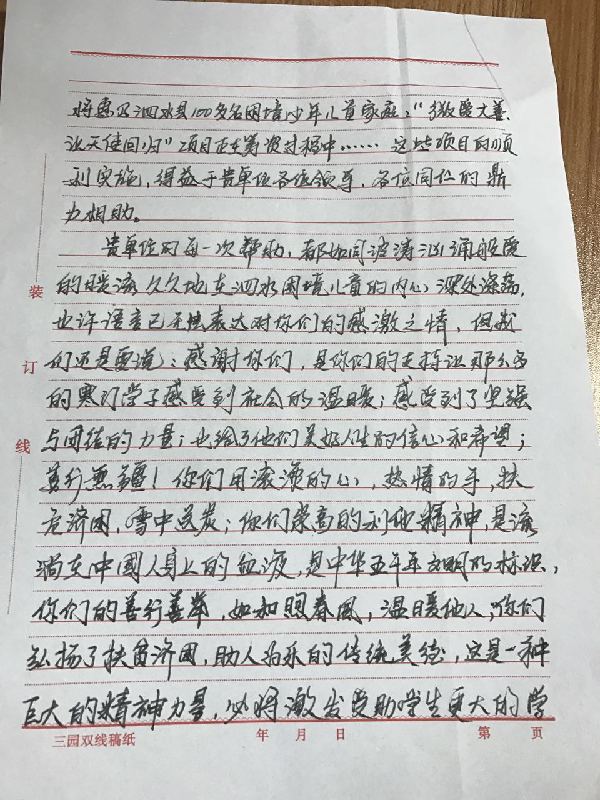 将惠及泗水县100多名困境少年儿童家庭，“撒爱大善、
让天使回归”项目正在筹资过程中……这些项目的顺
利实施，得益于贵单位各级领导，各位同仁的鼎
力相助。
贵单位的每一次帮助，都如同波涛汹涌般爱
的暖流久久地在泗水困境儿童的内心深处涤荡，
也许语言已无法表达对你们的感激之情，但我
们还是要说：感谢你们，是你们的支持让那么多
的寒门学子感受到社会的温暖；感受到了坚强
与团结的力量；也给了他们美好人生的信心和希望；
善行无疆！你们用滚烫的心，热情的手，扶
危济困，雪中送炭；你们崇高的利他精神，是流
淌在中國人身上的血液，是中华五千年文明的标识，
你们的善行善举，如和煦春風，温暖他人；你们
弘扬了扶贫济困，助人为乐的传统美德，这是一种
巨大的精神力量，必将激发受助学生更大的学
装
订
线
三园双线稿纸 年 月 日 第 页